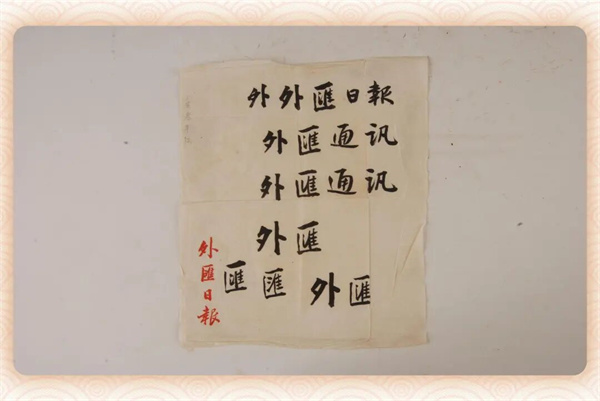 外外匯日報
外匯通訊
外匯通訊
外匯
匯匯外匯
外匯日報